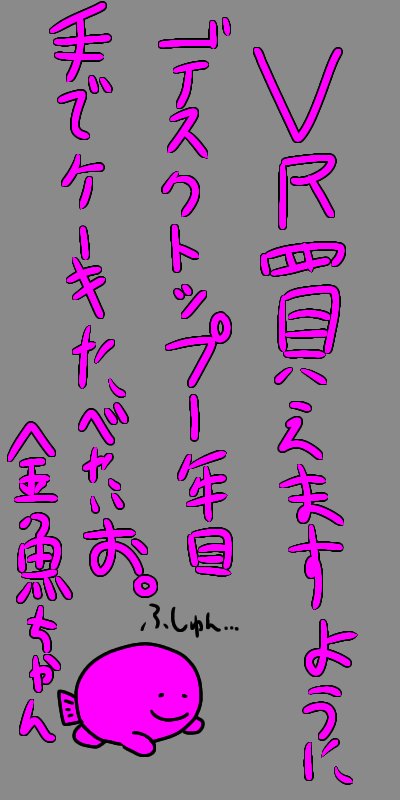 VR買えますように
デスクトップ1年目
手でケーキたべたいお。
金魚ちゃん
ふしゅん…